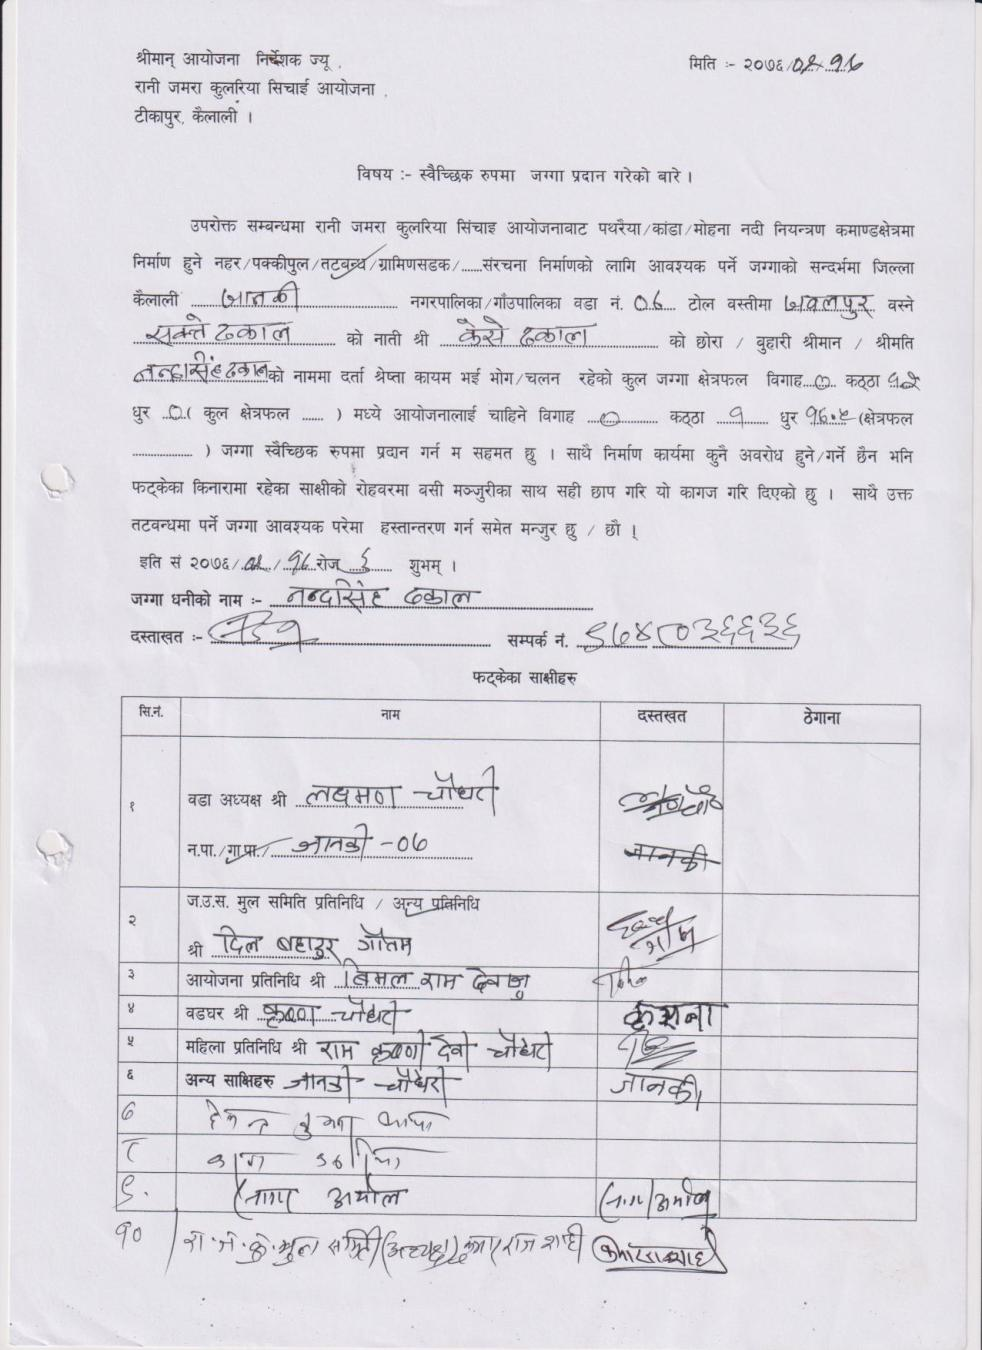 श्रीमान् आयोजना निर्देशक ज्यू ,
मिति :- २०७६/०८/१६
रानी जमरा कुलरिया सिचाई आयोजना ,
टीकापुर, कैलाली ।
विषय :- स्वैच्छिक रुपमा जग्गा प्रदान गरेको बारे ।
उपरोक्त सम्बन्धमा रानी जमरा कुलरिया सिंचाइ आयोजनाबाट पथरैया/कांडा/मोहना नदी नियन्त्रण कमाण्डक्षेत्रमा
निर्माण हुने नहर/पक्कीपुल/तटबन्ध/ग्रामिणसडक/......संरचना निर्माणको लागि आवश्यक पर्ने जग्गाको सन्दर्भमा जिल्ला
कैलाली जानकी नगरपालिका/गाँउपालिका वडा नं. ०७ टोल वस्तीमा जबलपुर वस्ने
सक्ते ढकाल को नाती श्री केसे ढकाल को छोरा / बुहारी श्रीमान / श्रीमति
नन्दसिंह ढकाल को नाममा दर्ता श्रेष्ता कायम भई भोग/चलन रहेको कुल जग्गा क्षेत्रफल विगाह ० कठ्ठा १२
धुर ० ( कुल क्षेत्रफल ...... ) मध्ये आयोजनालाई चाहिने विगाह ० कठ्ठा १ धुर १६.५ (क्षेत्रफल
.................. ) जग्गा स्वैच्छिक रुपमा प्रदान गर्न म सहमत छु । साथै निर्माण कार्यमा कुनै अवरोध हुने/गर्ने छैन भनि
फट्केका किनारामा रहेका साक्षीको रोहवरमा वसी मञ्जुरीका साथ सही छाप गरि यो कागज गरि दिएको छु । साथै उक्त
तटवन्धमा पर्ने जग्गा आवश्यक परेमा हस्तान्तरण गर्न समेत मन्जुर छु / छौ ।
इति सं २०७६/०८/१६ रोज ६ शुभम् ।
जग्गा धनीको नाम :- नन्दसिंह ढकाल
दस्ताखत :- सम्पर्क नं. ९७४८०३६६३६
फट्केका साक्षीहरु
सि.नं. नाम दस्तखत ठेगाना
१ वडा अध्यक्ष श्री लक्ष्मण चौधरी
न.पा./गा.पा./ जानकी -०७ जानकी
२ ज.उ.स. मुल समिति प्रतिनिधि / अन्य प्रतिनिधि
श्री दिल बहादुर गौतम
३ आयोजना प्रतिनिधि श्री बिमल राम देवजु
४ वडघर श्री कृष्ण चौधरी कृसना
५ महिला प्रतिनिधि श्री राम कृष्णी देवी चौधरी
६ अन्य साक्षिहरु जानकी चौधरी जानकी
७
८
९.
१० रा.ज.कु.मुल समिति (अध्यक्ष) राज शाही